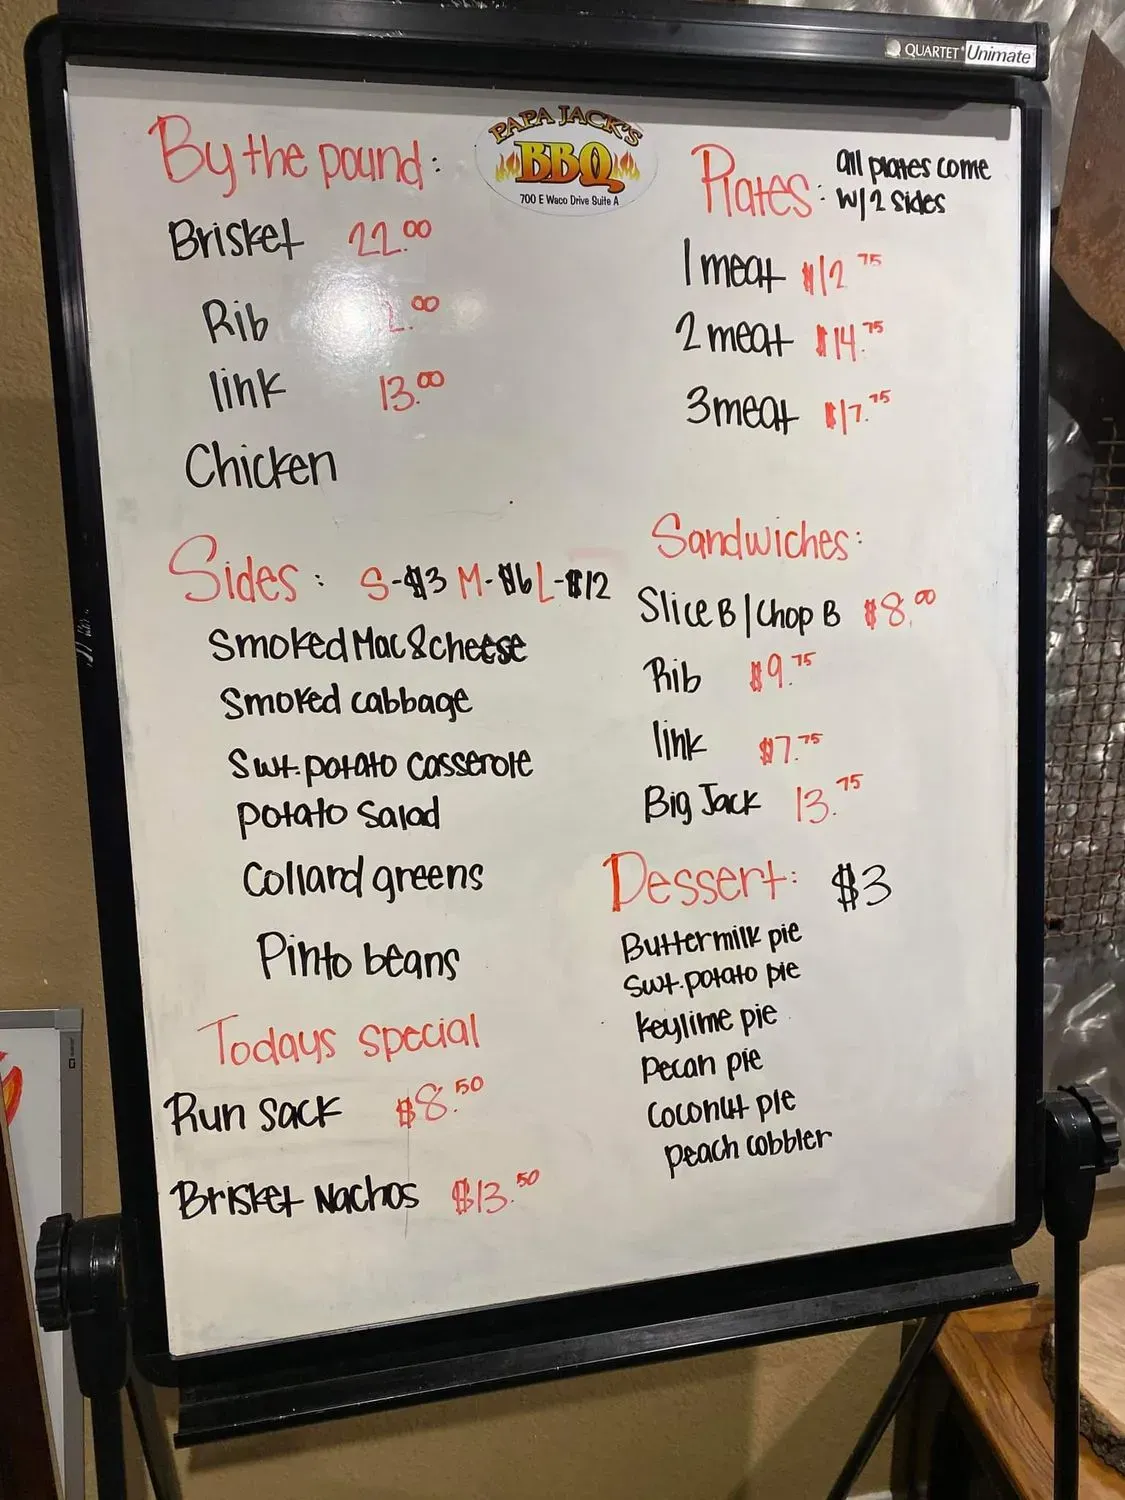 QUARTET Unimate
PAPA JACK'S
BBQ
700 E Waco Drive Suite A
By the pound:
Brisket 22.00
Rib
link 13.00
Chicken
Sides: S-$3 M-$6 L-$12
Smoked Mac&cheese
Smoked cabbage
Swt. potato casserole
potato salad
Collard greens
Pinto beans
Todays special
Run sack $8.50
Brisket Nachos $13.50
Plates: all plates come
w/2 sides
1 meat $12.75
2 meat $14.75
3 meat $17.75
Sandwiches:
Slice B/Chop B $8.00
Rib $9.75
link $7.75
Big Jack 13.75
Dessert: $3
Buttermilk pie
Swt. potato pie
keylime pie
Pecan pie
Coconut pie
peach cobbler